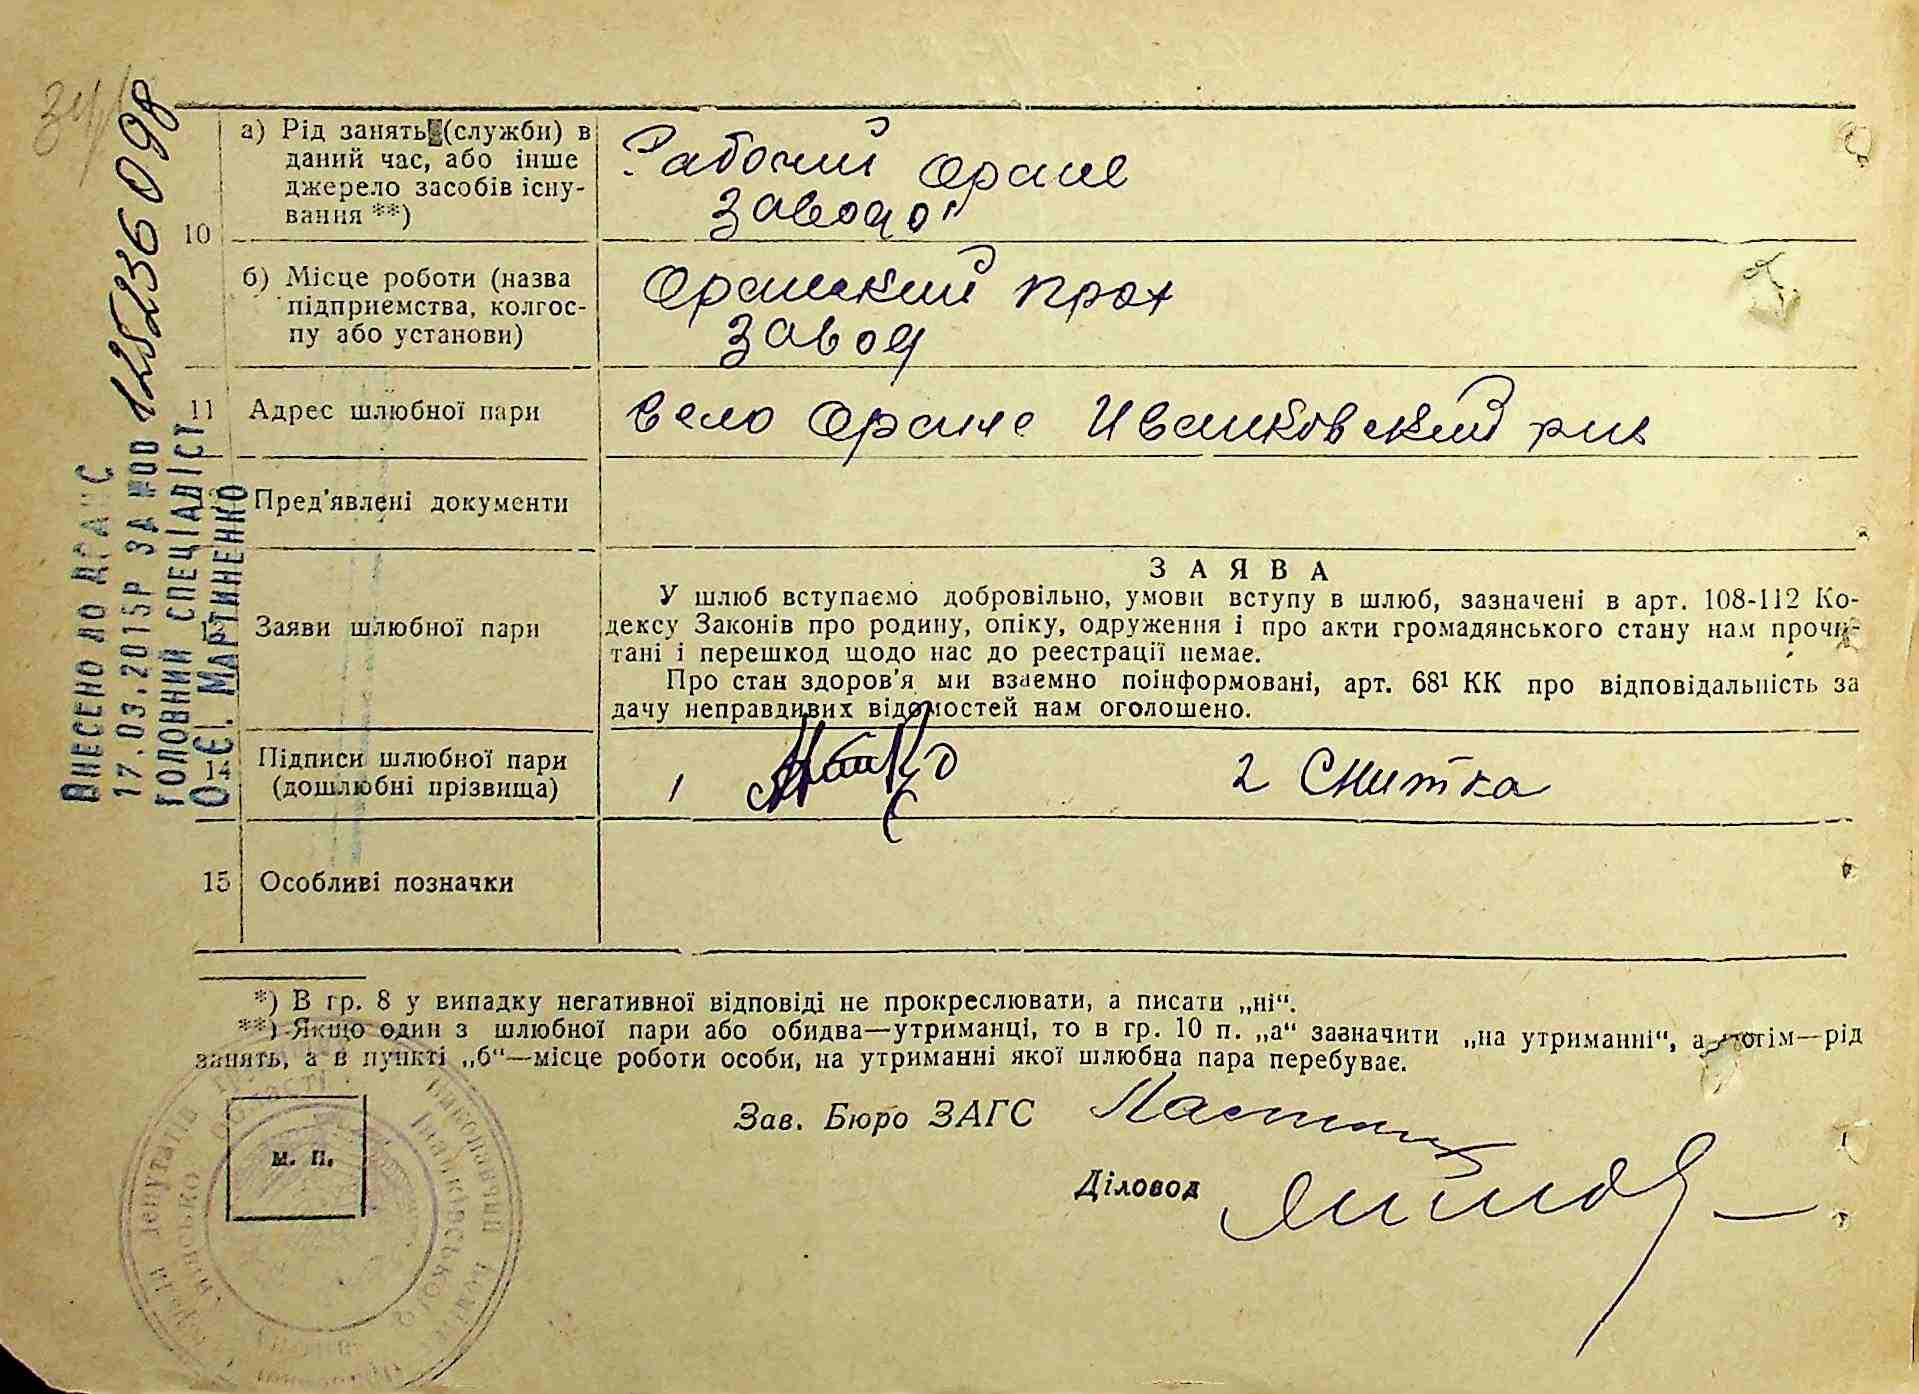 34/
ВНЕСЕНО ДО ДРАЦС
17.03.2015Р ЗА №00 125236098
ГОЛОВНИЙ СПЕЦІАЛІСТ
О.Є. МАРТИНЕНКО
10
а) Рід занять (служби) в
даний час, або інше
джерело засобів існу-
вання **)
Рабочий Оране
завода
б) Місце роботи (назва
підприємства, колгос-
пу або установи)
Оранский крах
завод
11 Адрес шлюбної пари
село Оране Иванковский р-на
Пред'явлені документи
Заяви шлюбної пари
ЗАЯВА
У шлюб вступаємо добровільно, умови вступу в шлюб, зазначені в арт. 108-112 Ко-
дексу Законів про родину, опіку, одруження і про акти громадянського стану нам прочи-
тані і перешкод щодо нас до реєстрації немає.
Про стан здоров'я ми взаємно поінформовані, арт. 68¹ КК про відповідальність за
дачу неправдивих відомостей нам оголошено.
14 Підписи шлюбної пари
(дошлюбні прізвища)
1
2 Снитка
15 Особливі позначки
*) В гр. 8 у випадку негативної відповіді не прокреслювати, а писати „ні“.
**) Якщо один з шлюбної пари або обидва—утриманці, то в гр. 10 п. „а“ зазначити „на утриманні“, а потім—рід
занять, а в пункті „б“—місце роботи особи, на утриманні якої шлюбна пара перебуває.
Зав. Бюро ЗАГС
Діловод
м. п.
Виконавчий комітет
Іванківської
депутатів
області